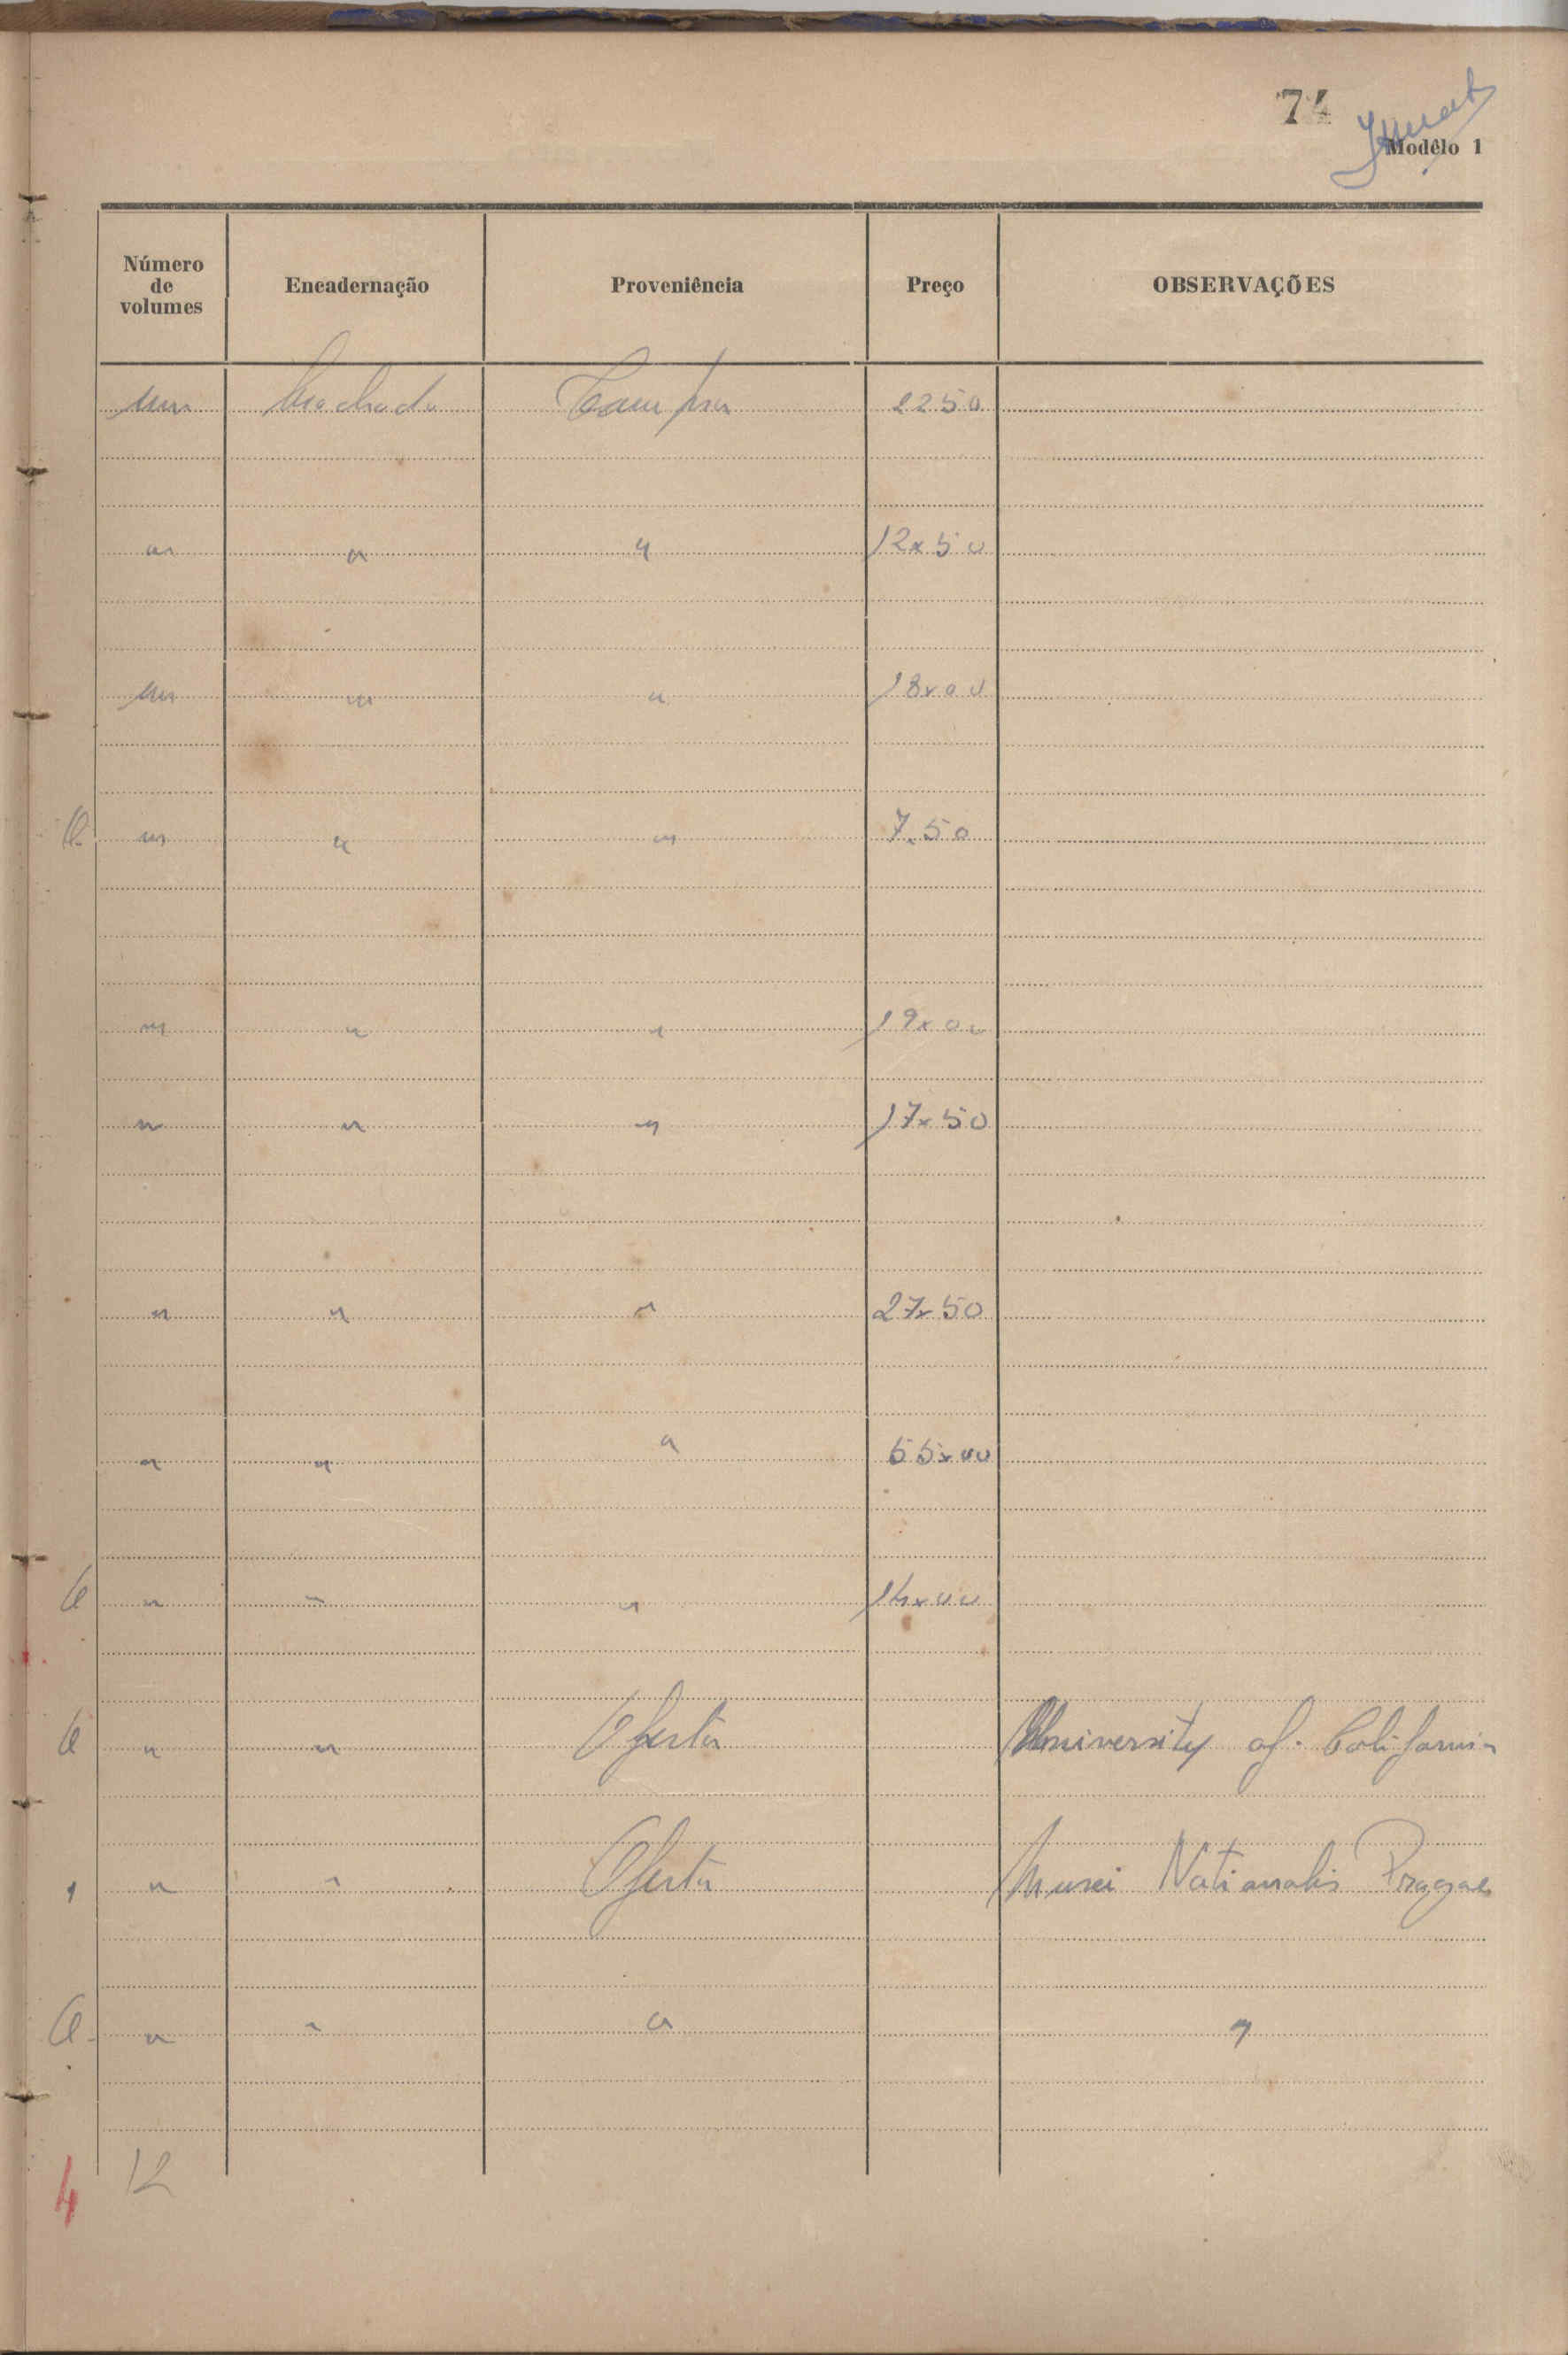 74
Modêlo 1
Número de volumes Encadernação Proveniência Preço OBSERVAÇÕES
um Brochado Compra 22 50
" " " 12x50
um " " 18x00
" " " 7x50
" " " 19x00
" " " 17x50
" " " 27x50
" " " 55x00
" " " 14x00
" " Oferta University of California
" " Oferta Musei Nationalis Pragae
" " " "
4 12